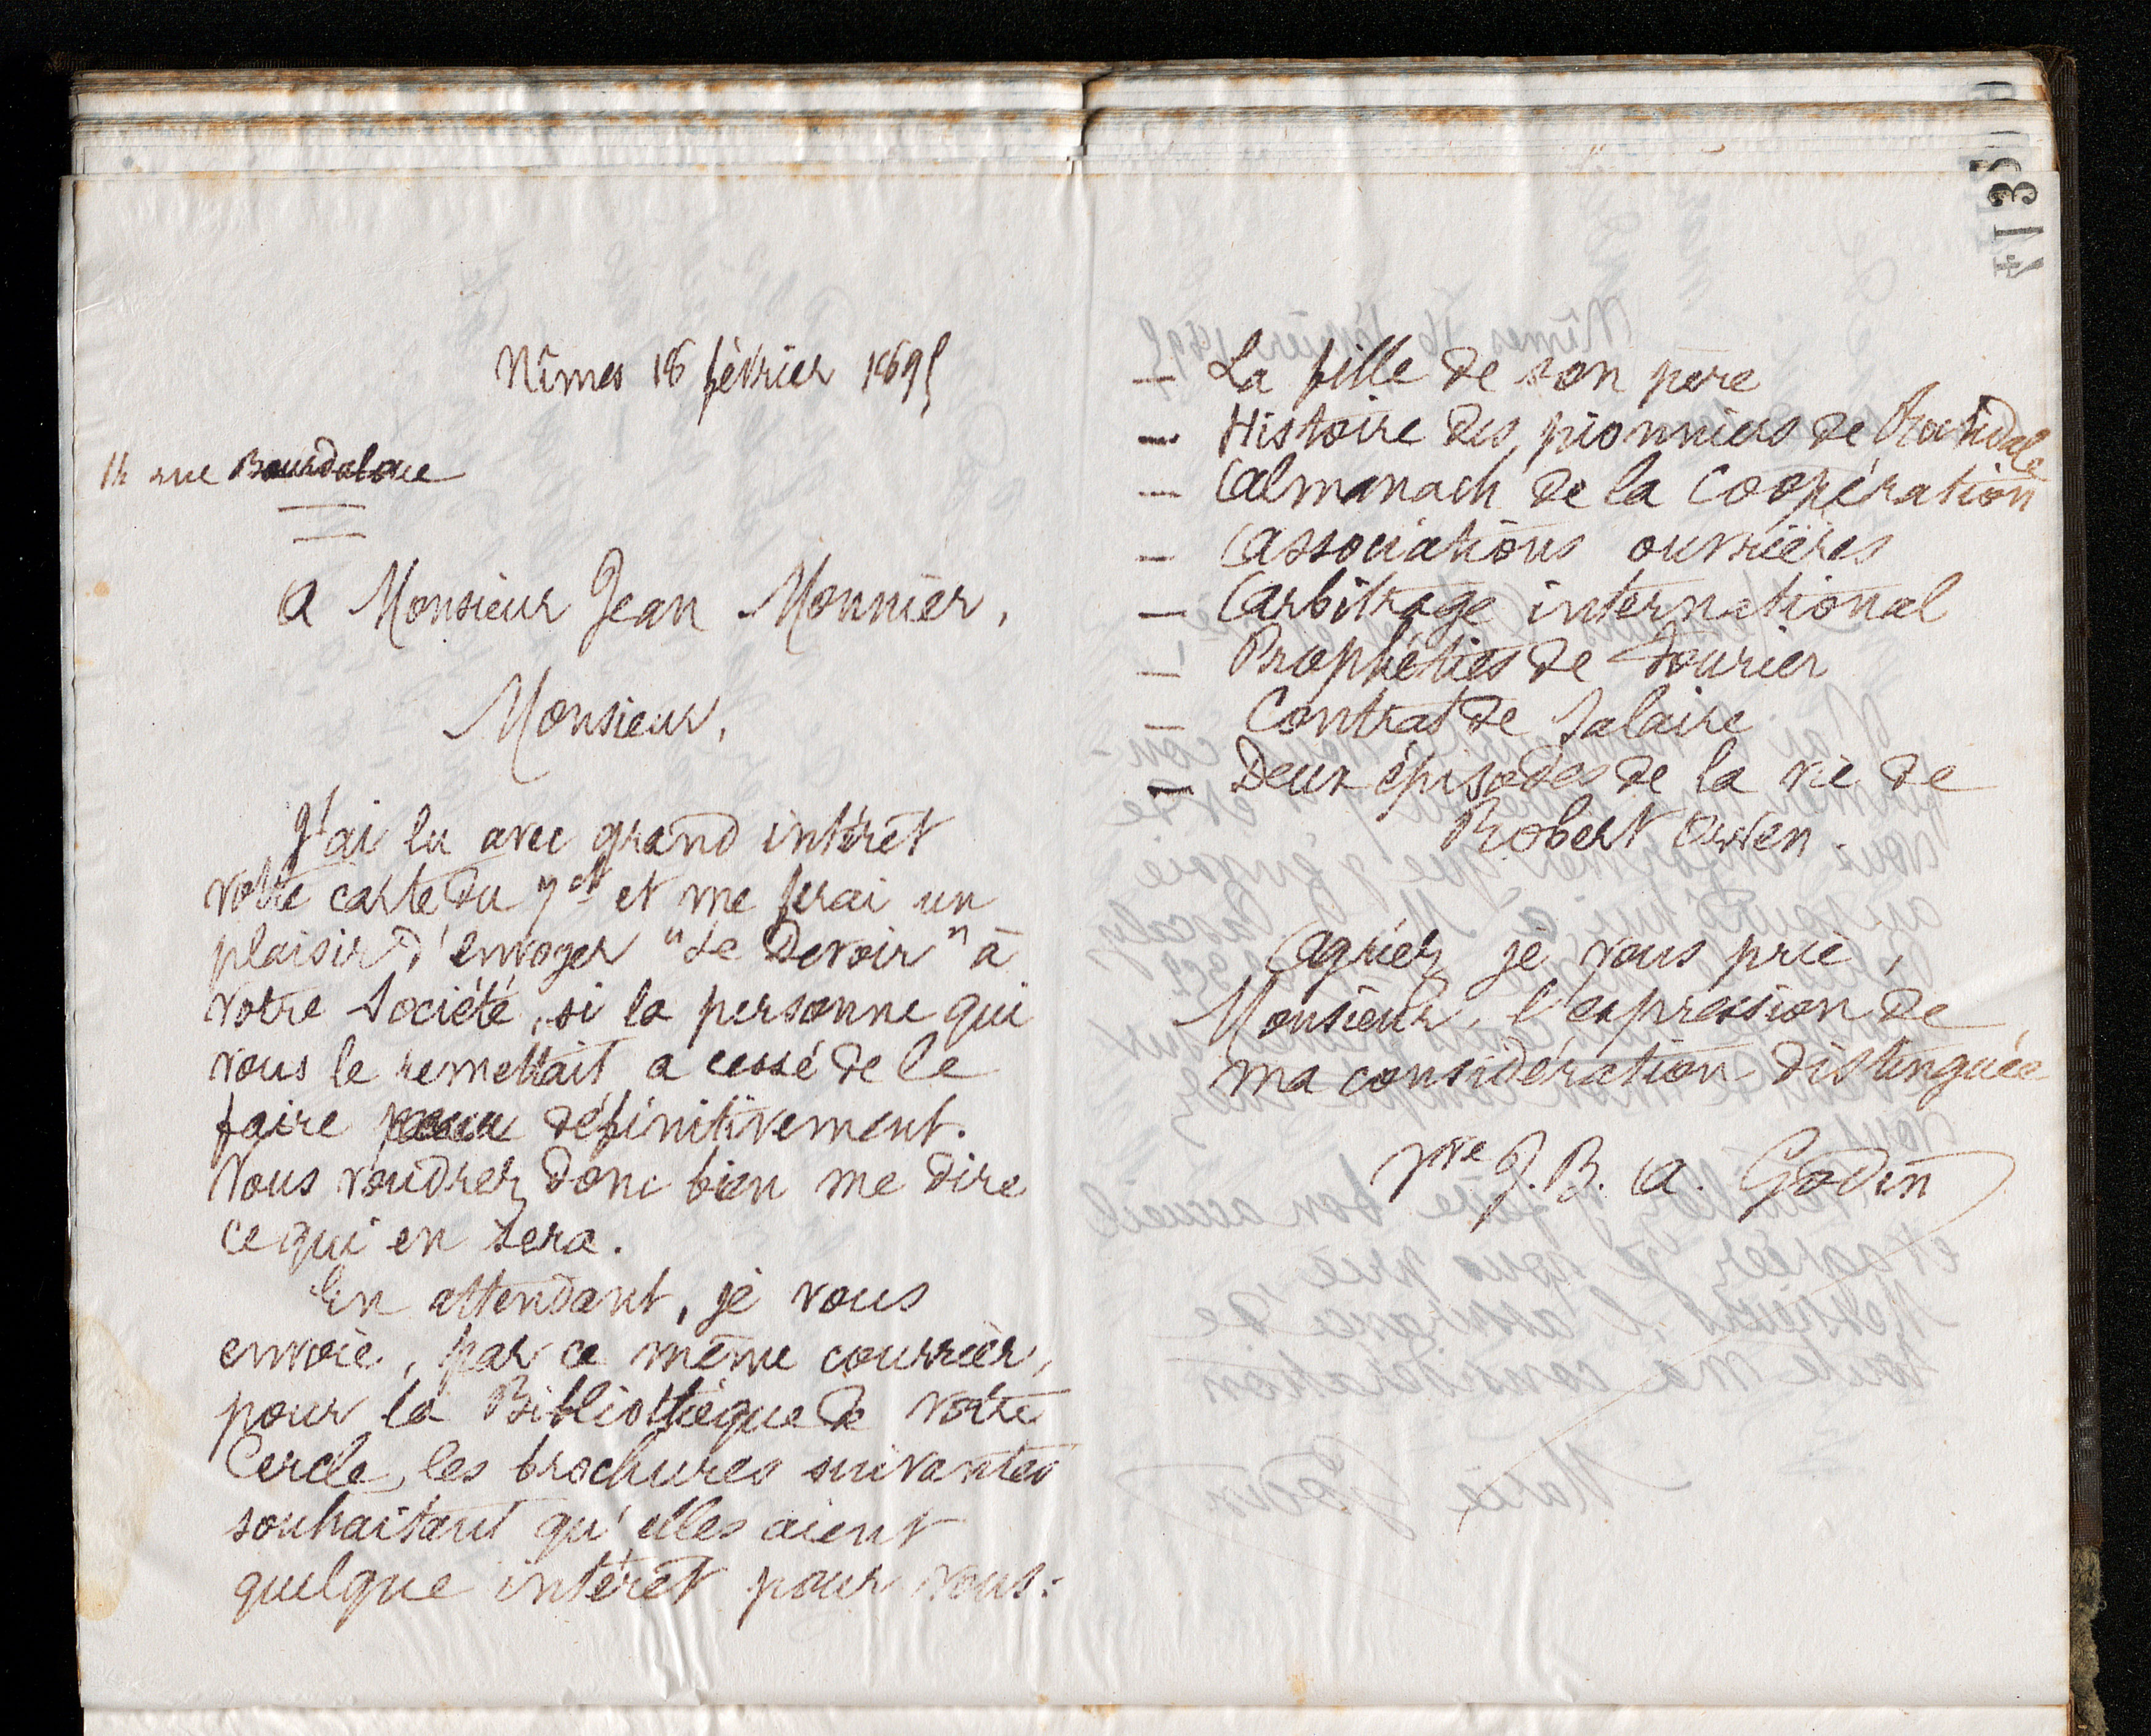 Nîmes 16 février 1895
14 rue Bourdaloue
A Monsieur Jean Monnier,
Monsieur,
J'ai lu avec grand intérêt
votre carte du et me ferai un
plaisir d'envoyer "Le Devoir" à
votre Société, si la personne qui
vous le remettait a cessé de le
faire définitivement.
Vous voudrez donc bien me dire
ce qui en sera.
En attendant, je vous
envoie, par ce même courrier,
pour la Bibliothèque de votre
Cercle, les brochures suivantes
souhaitant qu'elles aient
quelque intérêt pour vous:
— La fille de son père
— Histoire des pionniers de Rochdale
— Almanach de la Coopération
— Associations ouvrières
— Arbitrage international
— Prophéties de Fourier
— Contrat de Salaire
— Deux épisodes de la vie de
Robert Owen.
Agréez je vous prie,
Monsieur, l'expression de
ma considération distinguée
Vve J. B. A. Godin